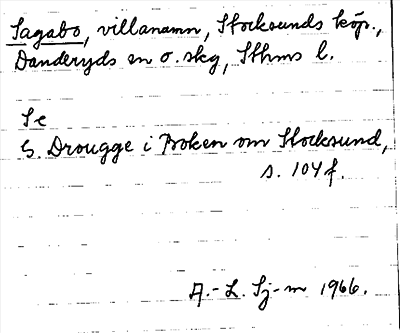 Sagabo, villanamn, Stocksunds köp.,
Danderyds sn o. skg, Sthms l.
Se
G. Drougge i Boken om Stocksund,
s. 104 f.
A.-L. Sj-m 1966.